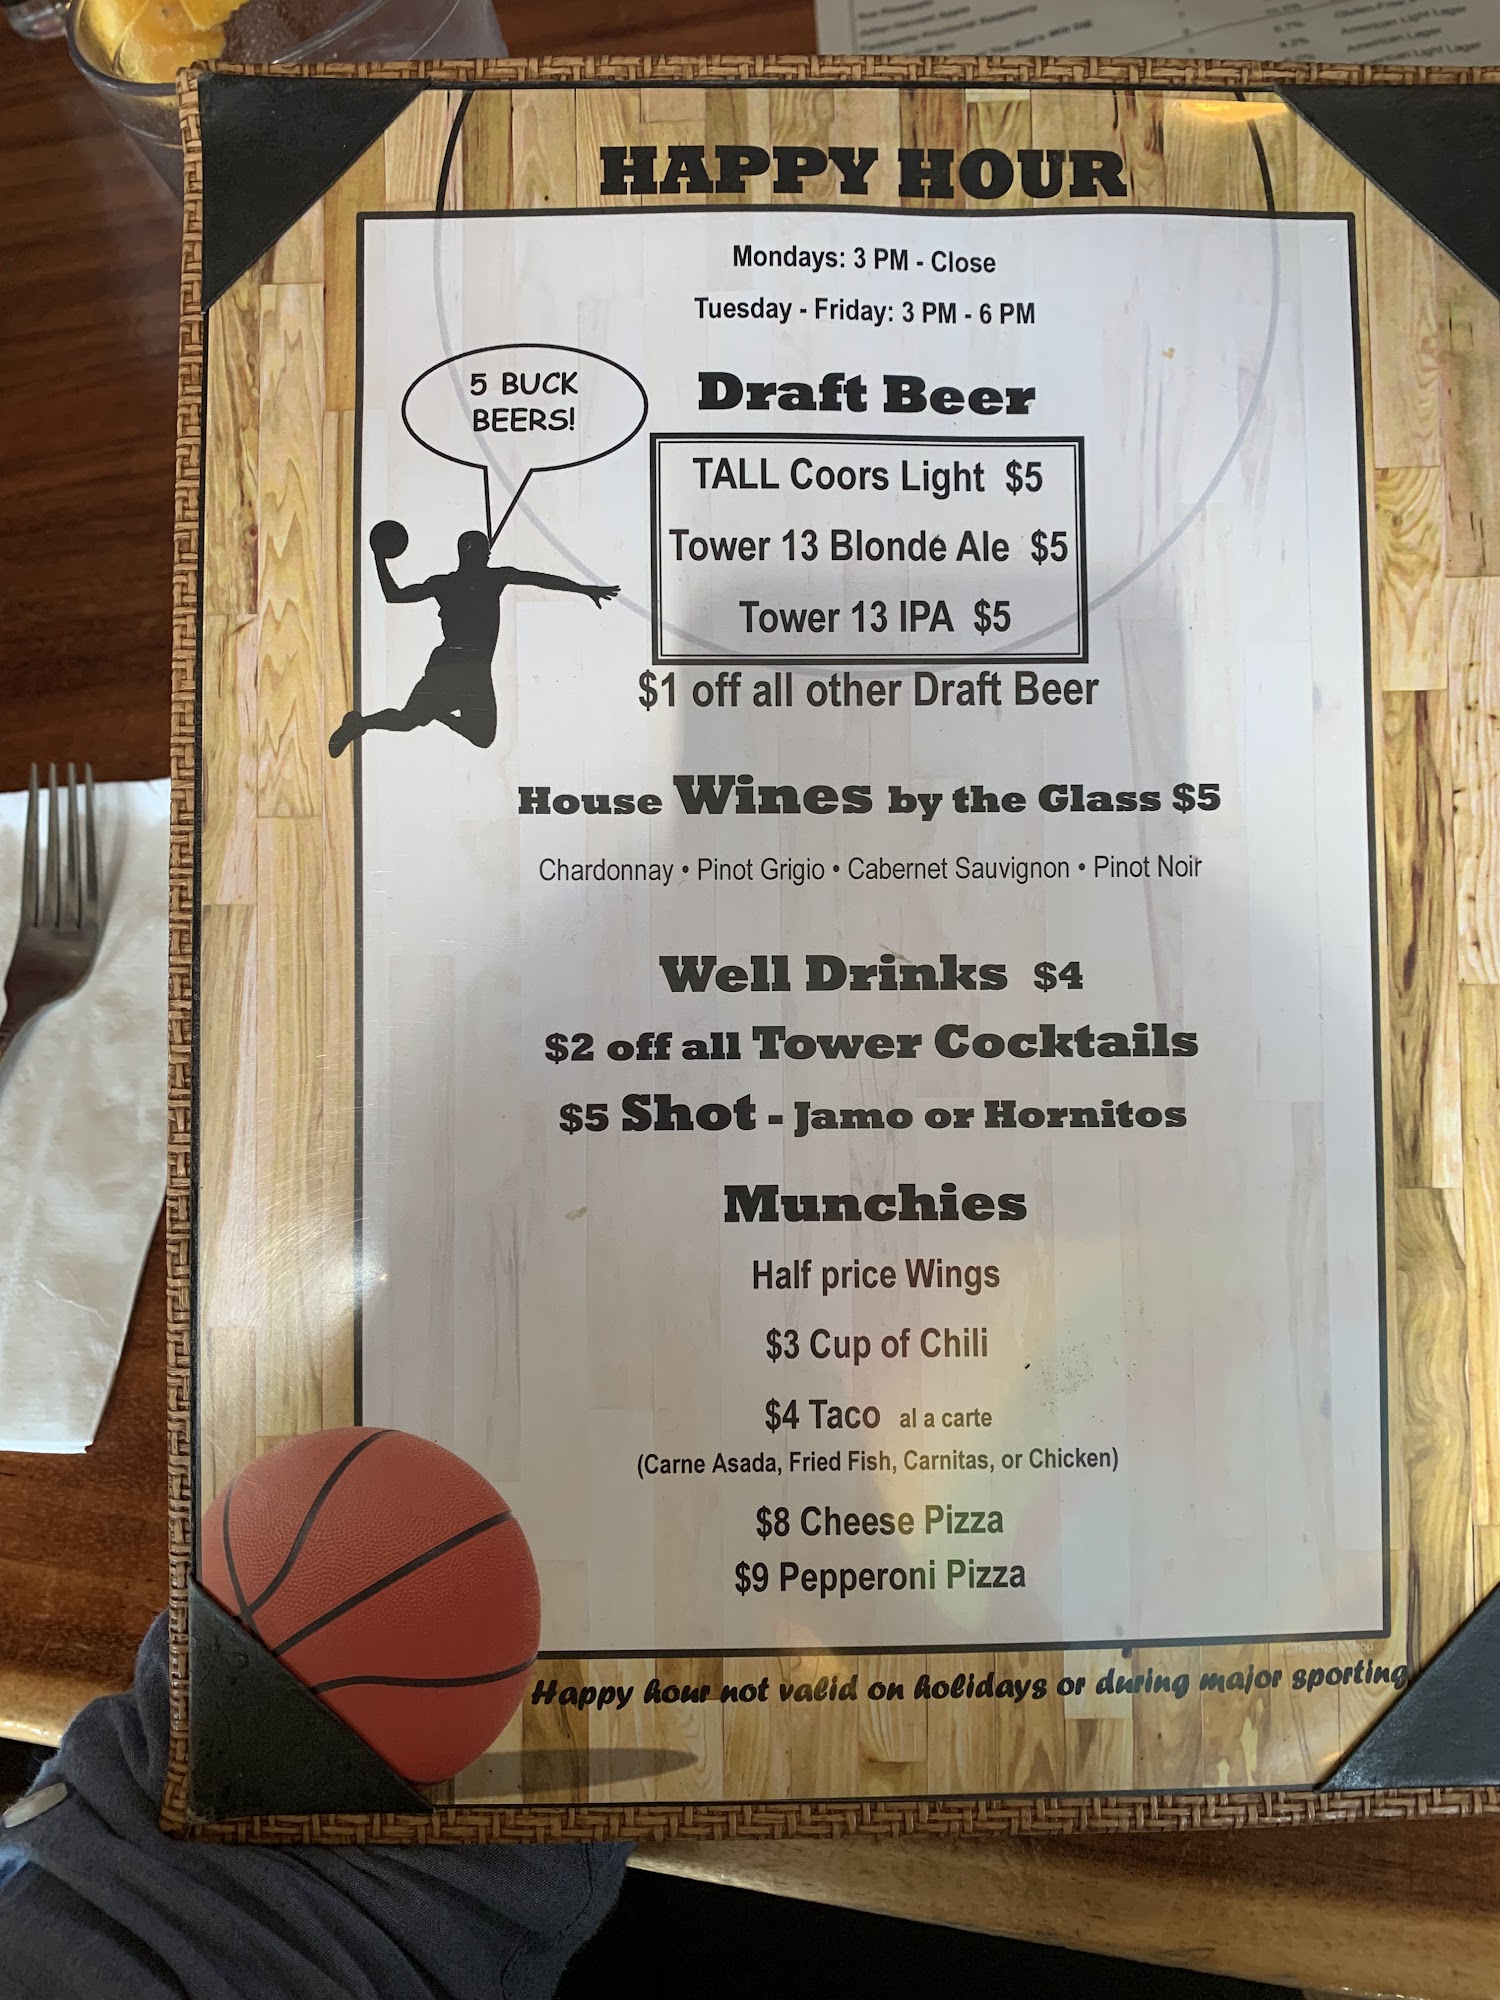 American Light Lager
American Lager
HAPPY HOUR
Mondays: 3 PM - Close
Tuesday - Friday: 3 PM - 6 PM
5 BUCK
BEERS!
Draft Beer
TALL Coors Light $5
Tower 13 Blonde Ale $5
Tower 13 IPA $5
$1 off all other Draft Beer
House Wines by the Glass $5
Chardonnay • Pinot Grigio • Cabernet Sauvignon • Pinot Noir
Well Drinks $4
$2 off all Tower Cocktails
$5 Shot - Jamo or Hornitos
Munchies
Half price Wings
$3 Cup of Chili
$4 Taco al a carte
(Carne Asada, Fried Fish, Carnitas, or Chicken)
$8 Cheese Pizza
$9 Pepperoni Pizza
Happy hour not valid on holidays or during major sporting